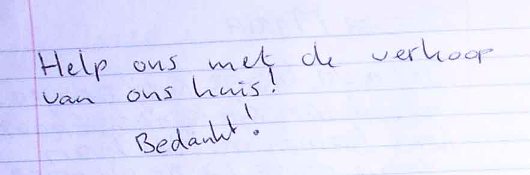 Help ons met de verkoop
van ons huis!
Bedankt!